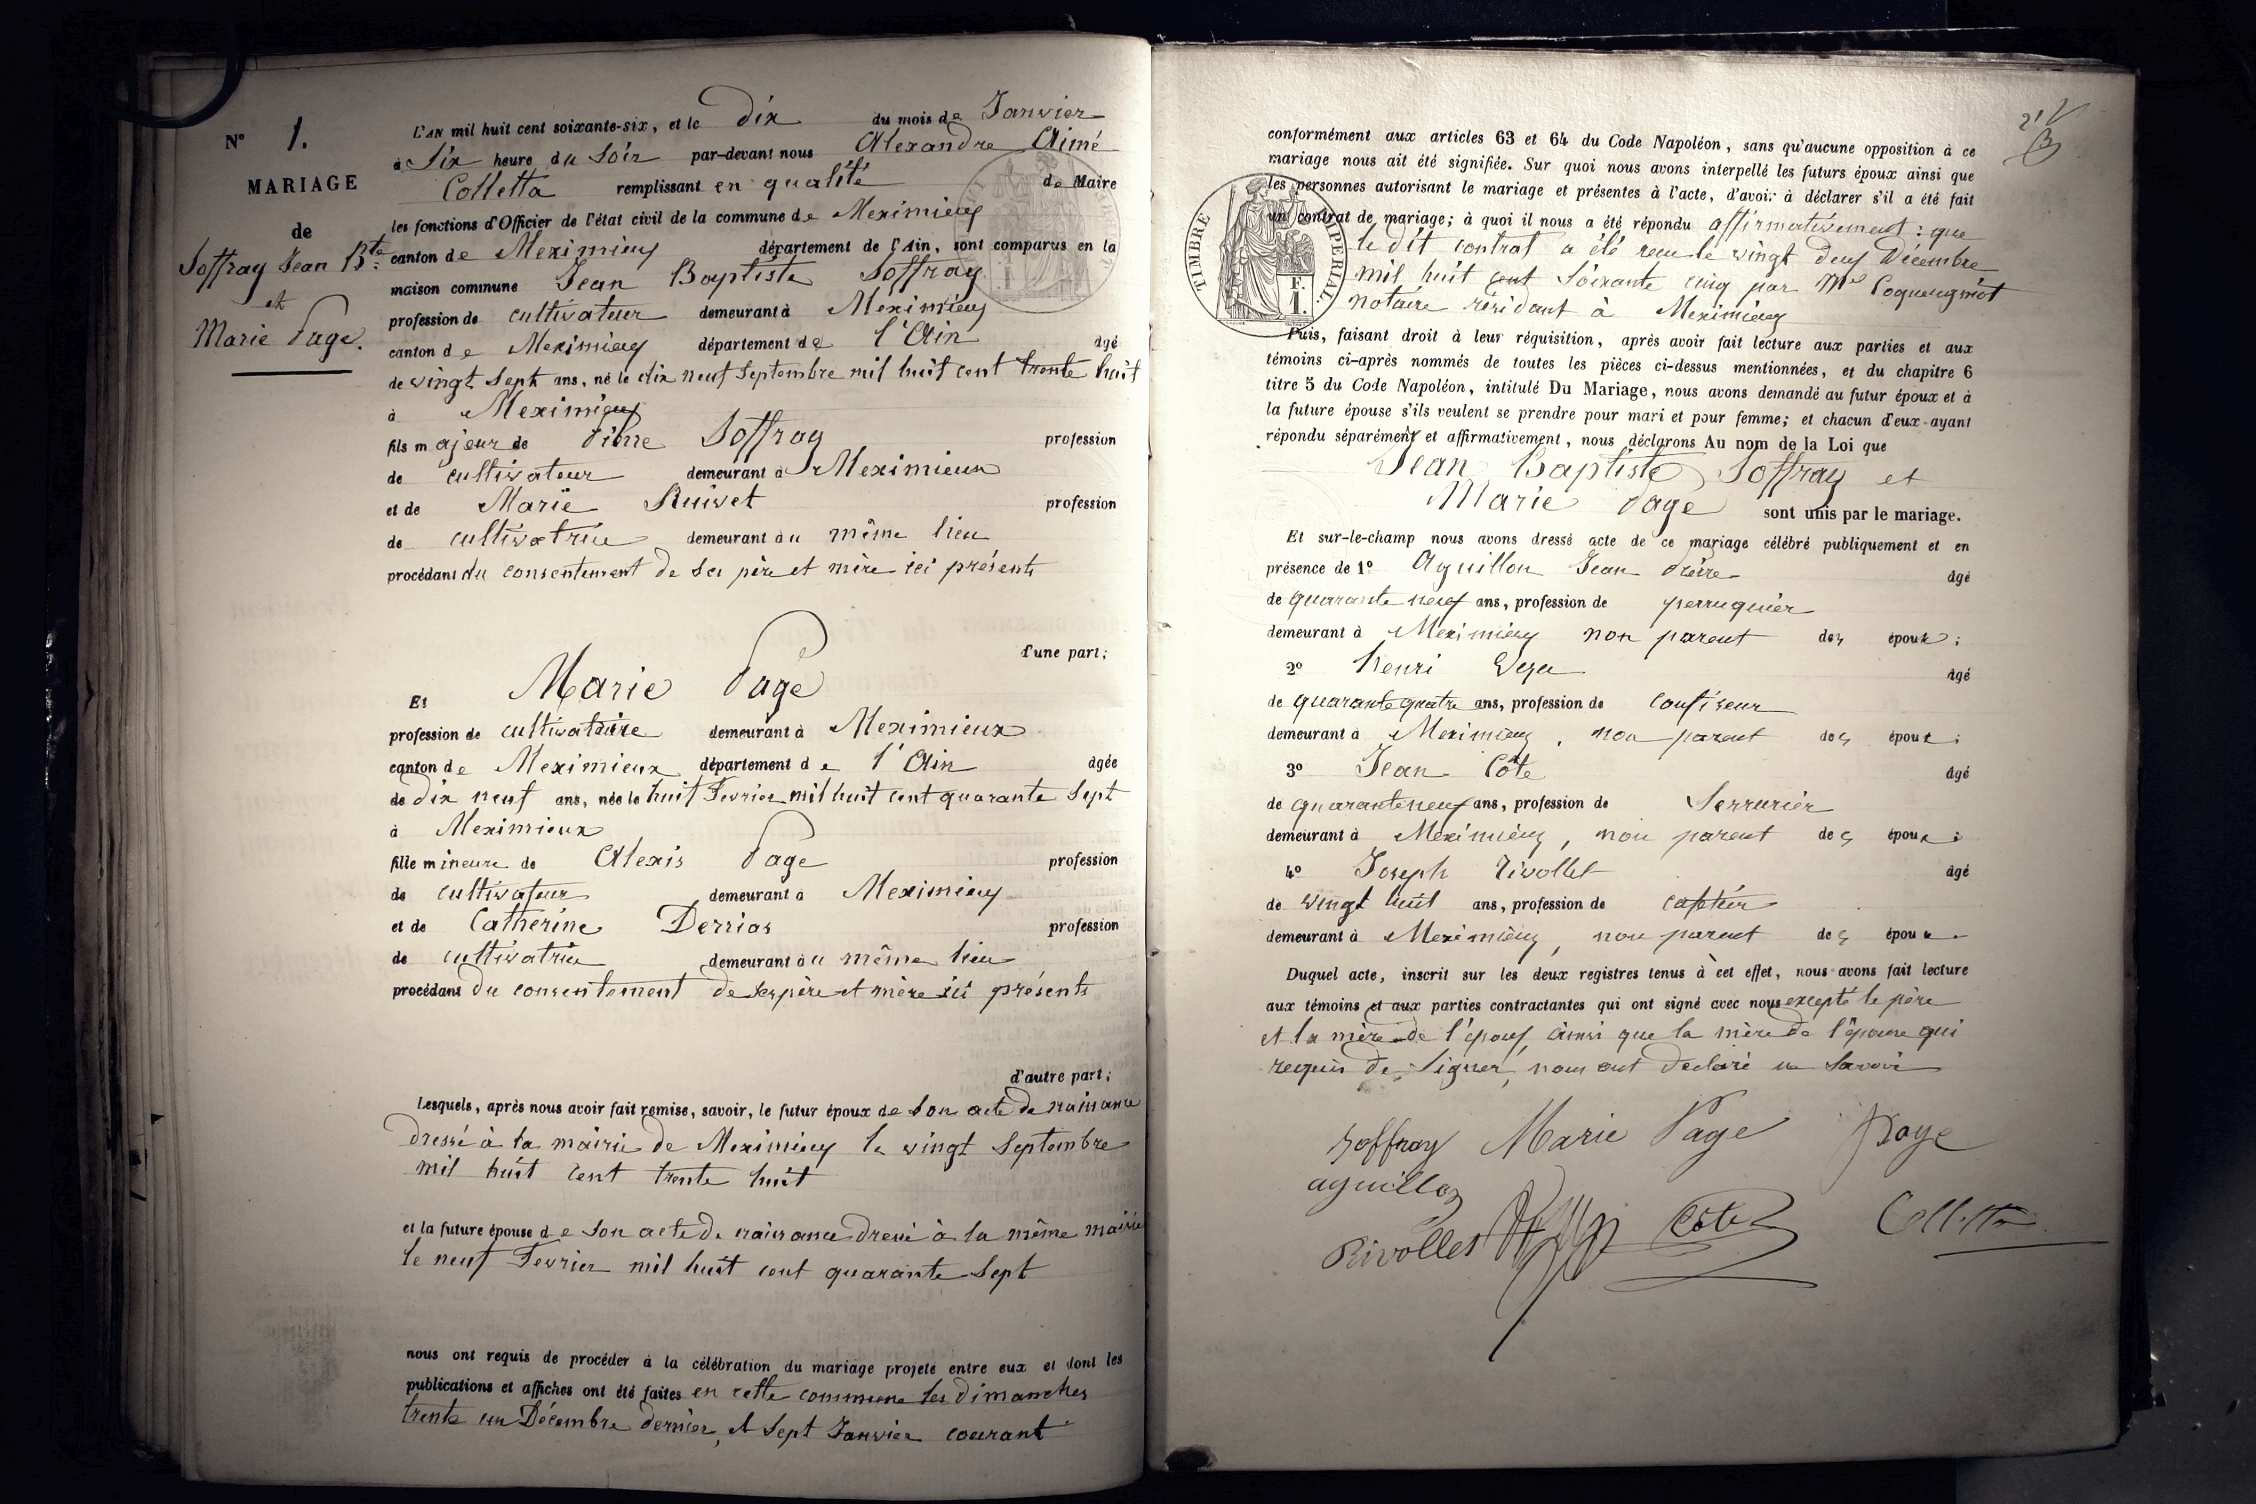 N° 1.
MARIAGE
de
Soffray Jean Bte
et
Marie Page.
L'AN mil huit cent soixante-six, et le dix du mois de Janvier
à Six heure du Soir par-devant nous Alexandre Aimé
Colletta remplissant en qualité de Maire
les fonctions d'Officier de l'état civil de la commune de Meximieux
canton de Meximieux département de l'Ain, sont comparus en la
maison commune Jean Baptiste Soffray
profession de cultivateur demeurant à Meximieux
canton de Meximieux département de l'Ain âgé
de vingt Sept ans, né le dix neuf Septembre mil huit cent trente huit
à Meximieux
fils majeur de Pierre Soffray profession
de cultivateur demeurant à Meximieux
et de Marie Ruivet profession
de cultivatrice demeurant au même lieu
procédant du consentement de Ses père et mère ici présents
d'une part;
Et Marie Page
profession de cultivatrice demeurant à Meximieux
canton de Meximieux département de l'Ain âgée
de dix neuf ans, née le huit Fevrier mil huit cent quarante Sept
à Meximieux
fille mineure de Alexis Page profession
de cultivateur demeurant à Meximieux
et de Catherine Derrias profession
de cultivatrice demeurant au même lieu
procédant du consentement de ses père et mère ici présents
d'autre part;
Lesquels, après nous avoir fait remise, savoir, le futur époux de Son acte de naissance
dressé à la mairie de Meximieux le vingt Septembre
mil huit cent trente huit
et la future épouse de Son acte de naissance dressé à la même mairie
le neuf Fevrier mil huit cent quarante Sept
nous ont requis de procéder à la célébration du mariage projeté entre eux et dont les
publications et affiches ont été faites en cette commune les dimanches
trente un Décembre dernier, et Sept Janvier courant
conformément aux articles 63 et 64 du Code Napoléon, sans qu'aucune opposition à ce
mariage nous ait été signifiée. Sur quoi nous avons interpellé les futurs époux ainsi que
les personnes autorisant le mariage et présentes à l'acte, d'avoir à déclarer s'il a été fait
un contrat de mariage; à quoi il nous a été répondu affirmativement: que
le dit contrat a été recu le vingt deux Décembre
mil huit cent Soixante cinq par Me Coquengniot
notaire résidant à Meximieux
TIMBRE IMPERIAL.
1 F.
Puis, faisant droit à leur réquisition, après avoir fait lecture aux parties et aux
témoins ci-après nommés de toutes les pièces ci-dessus mentionnées, et du chapitre 6
titre 5 du Code Napoléon, intitulé Du Mariage, nous avons demandé au futur époux et à
la future épouse s'ils veulent se prendre pour mari et pour femme; et chacun d'eux ayant
répondu séparément et affirmativement, nous déclarons Au nom de la Loi que
Jean Baptiste Soffray et
Marie Page sont unis par le mariage.
Et sur-le-champ nous avons dressé acte de ce mariage célébré publiquement et en
présence de 1° Aguillon Jean Pierre âgé
de quarante neuf ans, profession de perruquier
demeurant à Meximieux non parent des époux;
2° Henri âgé
de quarante quatre ans, profession de confiseur
demeurant à Meximieux, non parent des époux;
3° Jean Côte âgé
de quarante neuf ans, profession de Serrurier
demeurant à Meximieux, non parent des époux;
4° Joseph Rivollet âgé
de vingt huit ans, profession de caftier
demeurant à Meximieux, non parent des époux.
Duquel acte, inscrit sur les deux registres tenus à cet effet, nous avons fait lecture
aux témoins et aux parties contractantes qui ont signé avec nous excepté le père
et la mère de l'époux, ainsi que la mère de l'épouse qui
requis de Signer, nous ont déclaré ne Savoir
Soffray Marie Page Page
aguillon
Rivollet Côte Colletta